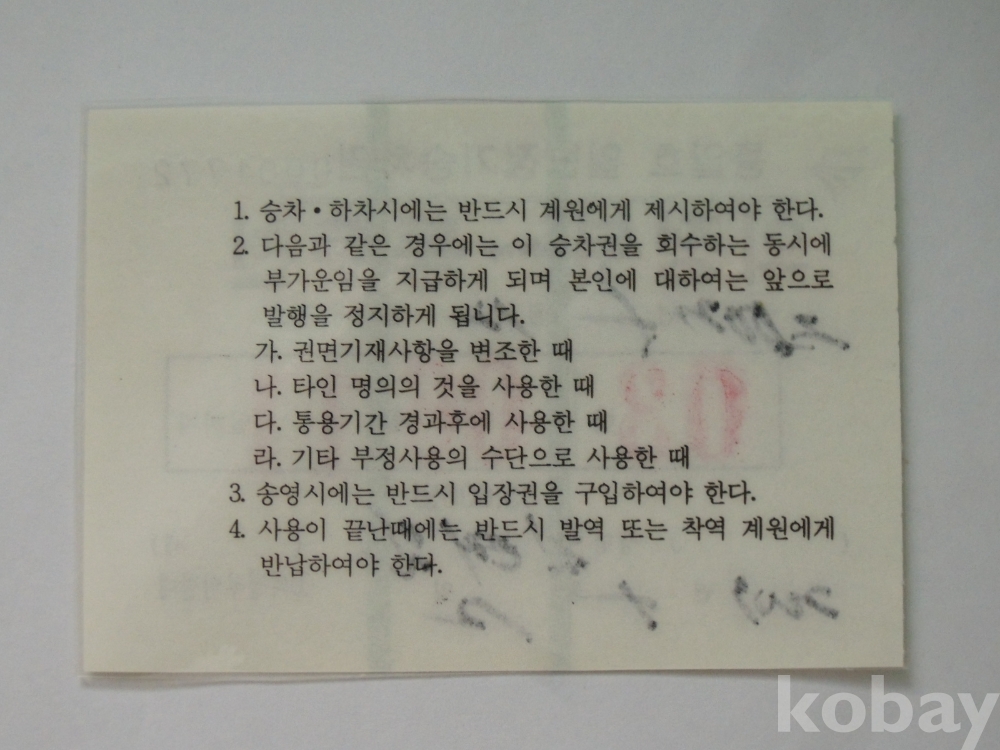 1. 승차·하차시에는 반드시 계원에게 제시하여야 한다.
2. 다음과 같은 경우에는 이 승차권을 회수하는 동시에
부가운임을 지급하게 되며 본인에 대하여는 앞으로
발행을 정지하게 됩니다.
가. 권면기재사항을 변조한 때
나. 타인 명의의 것을 사용한 때
다. 통용기간 경과후에 사용한 때
라. 기타 부정사용의 수단으로 사용한 때
3. 송영시에는 반드시 입장권을 구입하여야 한다.
4. 사용이 끝난때에는 반드시 발역 또는 착역 계원에게
반납하여야 한다.
kobay